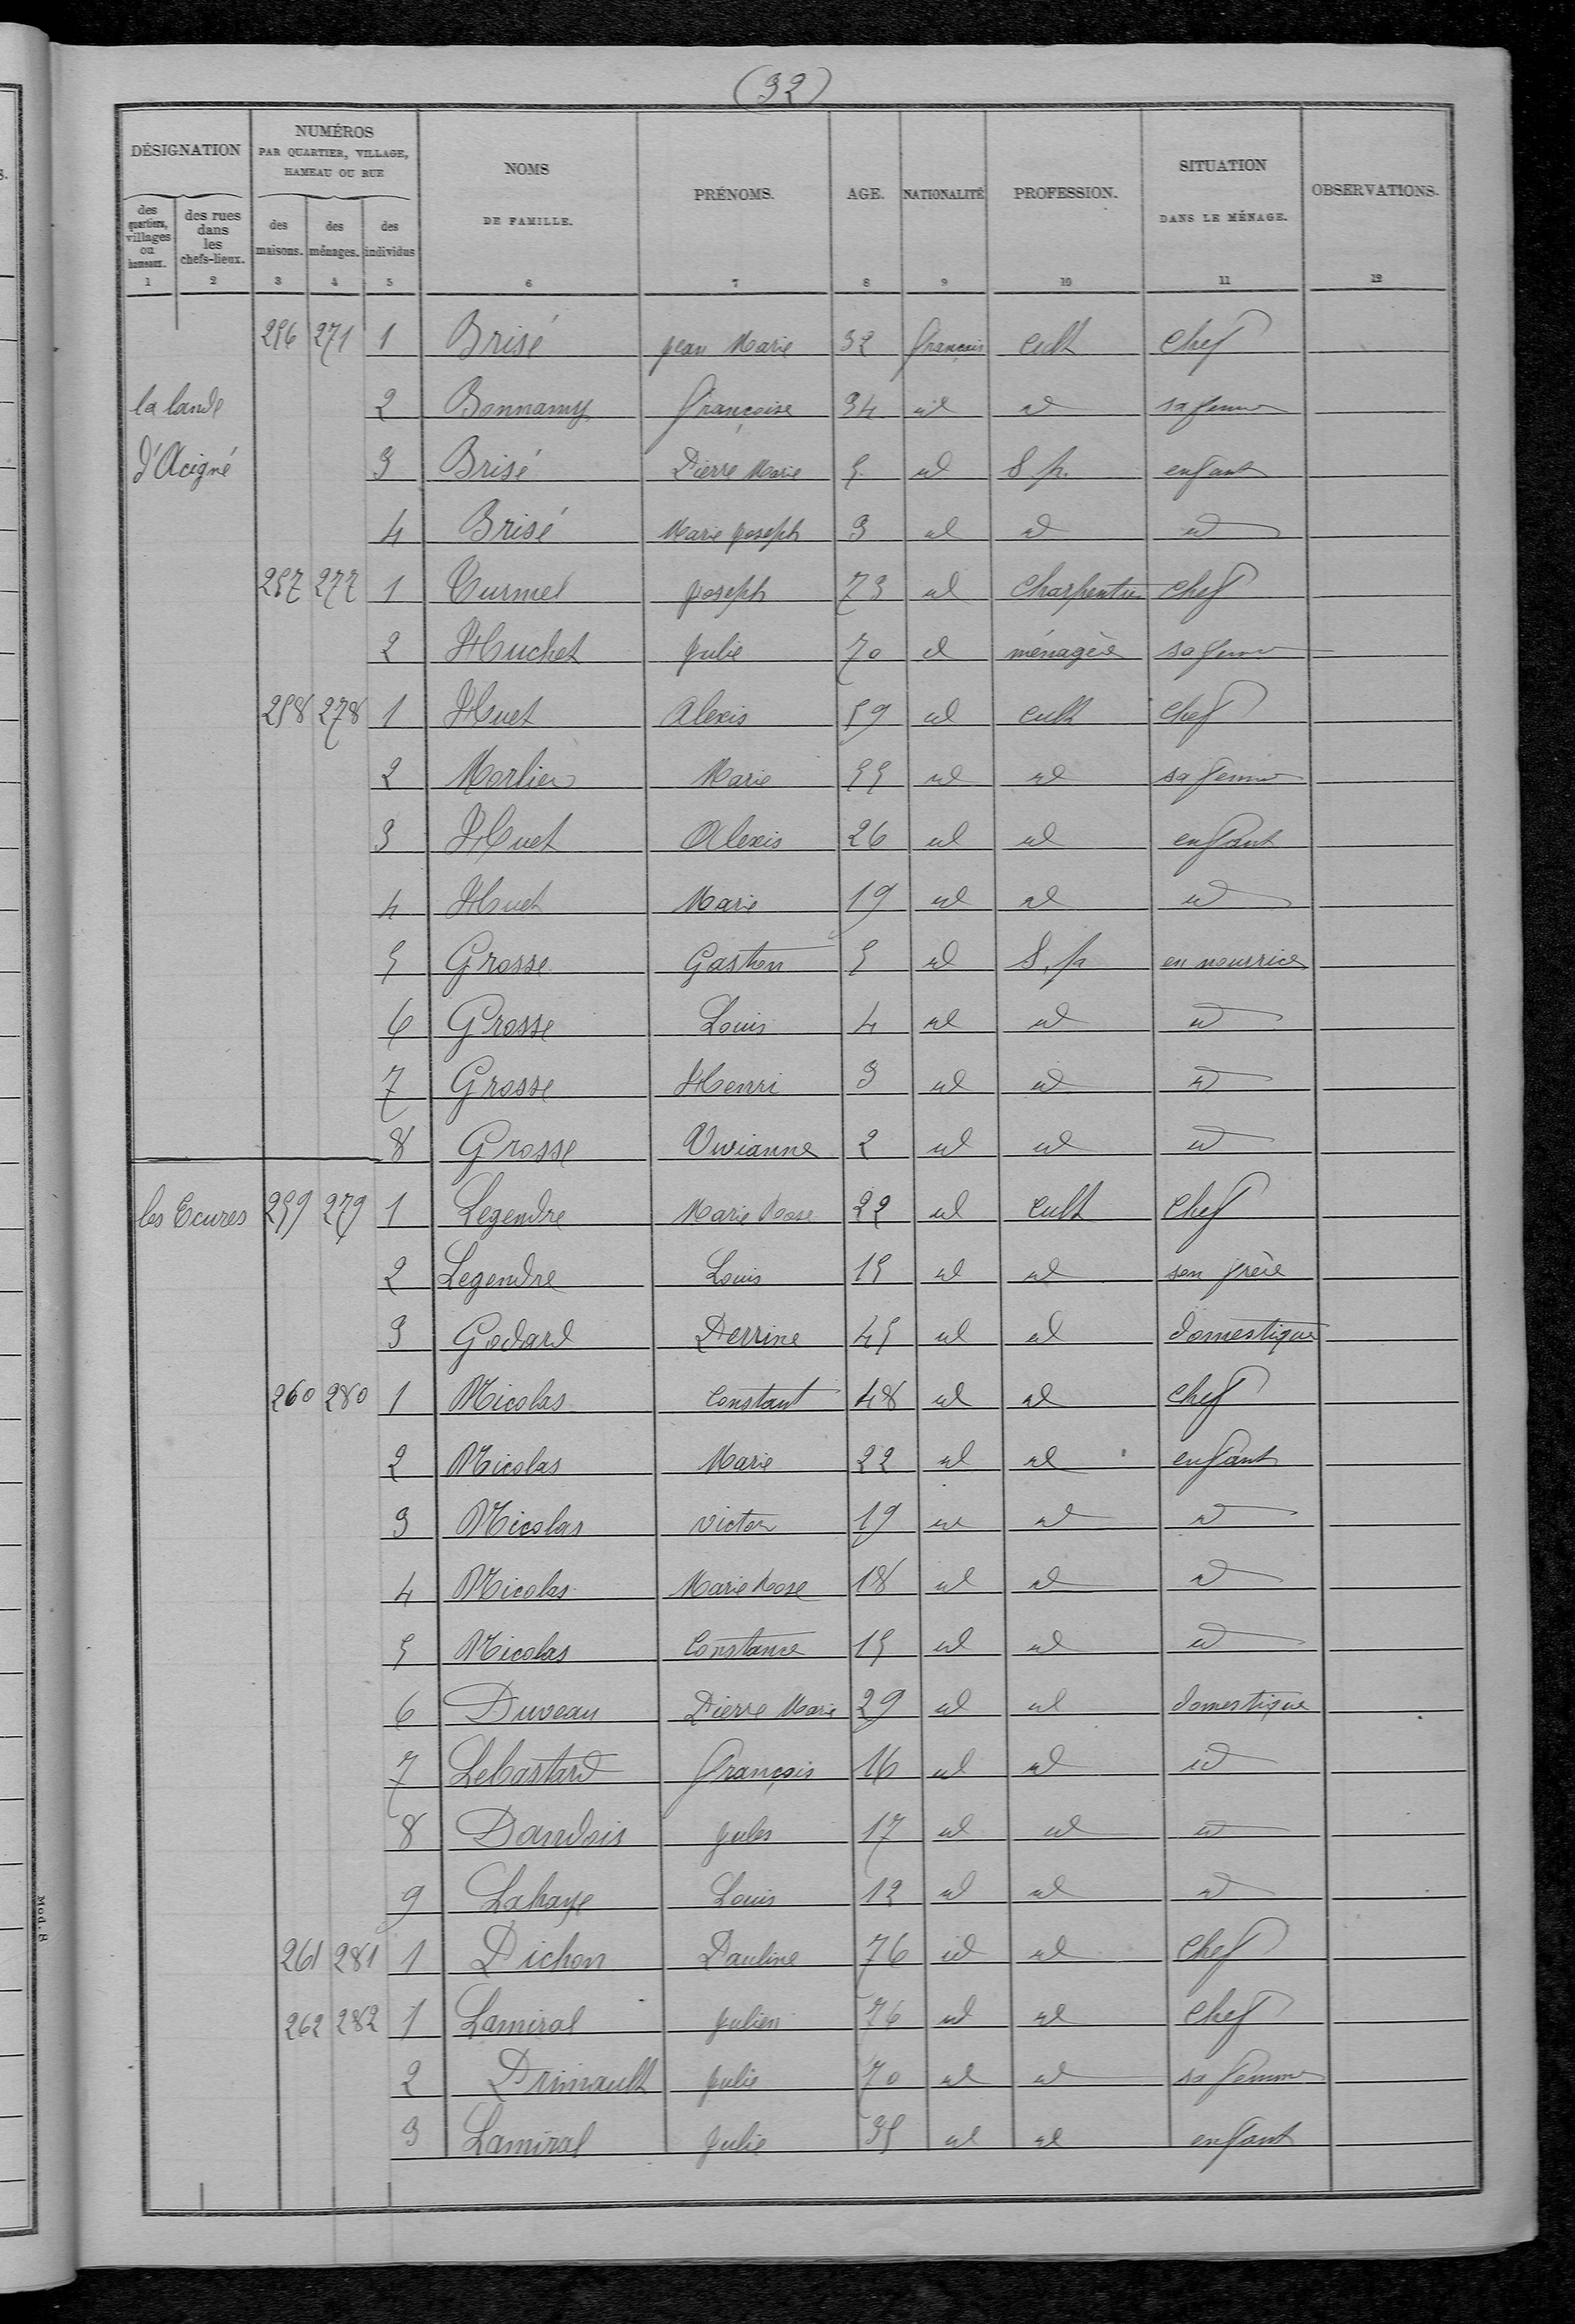 (32)
DÉSIGNATION
des quartiers, villages ou hameaux.
des rues dans les chefs-lieux.
NUMÉROS
PAR QUARTIER, VILLAGE,
HAMEAU OU RUE
des maisons.
des ménages.
des individus
NOMS
DE FAMILLE.
PRÉNOMS.
AGE.
NATIONALITÉ
PROFESSION.
SITUATION
DANS LE MÉNAGE.
OBSERVATIONS.
1 2 3 4 5 6 7 8 9 10 11 12
256 271 1 Brisé jean Marie 32 français cult chef
la lande 2 Bonnamy françoise 34 id id sa femme
d'Acigné 3 Brisé Pierre Marie 5 id S p. enfant
4 Brisé Marie joseph 3 id id id
257 277 1 Turmel joseph 73 id charpentier chef
2 Huchet julie 70 id ménagère sa femme
258 278 1 Huet Alexis 59 id cult chef
2 Morlier Marie 55 id id sa femme
3 Huet Alexis 26 id id enfant
4 Huet Marie 19 id id id
5 Grosse Gaston 5 id S. p en nourrice
6 Grosse Louis 4 id id id
7 Grosse Henri 3 id id id
8 Grosse Vivianne 2 id id id
les Ecures 259 279 1 Legendre Marie Rose 22 id cult chef
2 Legendre Louis 15 id id son frère
3 Godard Perrine 45 id id domestique
260 280 1 Nicolas Constant 48 id id chef
2 Nicolas Marie 22 id id enfant
3 Nicolas victor 19 id id id
4 Nicolas Marie Rose 18 id id id
5 Nicolas Constance 15 id id id
6 Duveau Pierre Marie 29 id id domestique
7 Lebastard François 16 id id id
8 Dandois jules 17 id id id
9 Lahaye Louis 12 id id id
261 281 1 Pichon Pauline 76 id id chef
262 282 1 Lamiral julien 76 id id chef
2 Primault julie 70 id id sa femme
3 Lamiral julie 35 id id enfant
Mod. 8